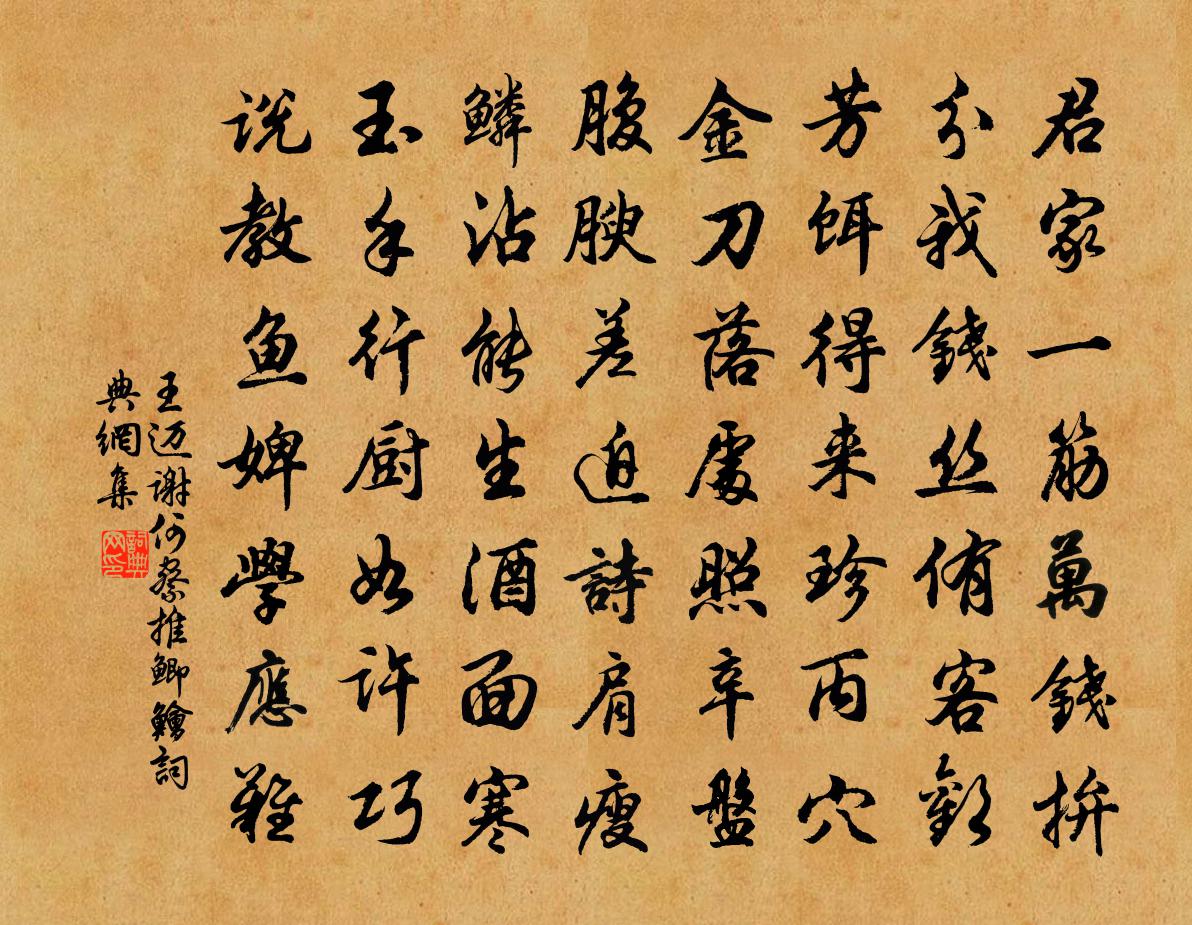 君家一筋萬錢拚
分我錢丝侑客歡
芳餌得来珍丙穴
金刀落處照辛盤
腹腴差迫詩肩瘦
鱗沾能生酒面寒
玉手行厨如許巧
说教鱼婢學應難
王迈謝何祭推鯽鱠詞
典網集
詞典
网印